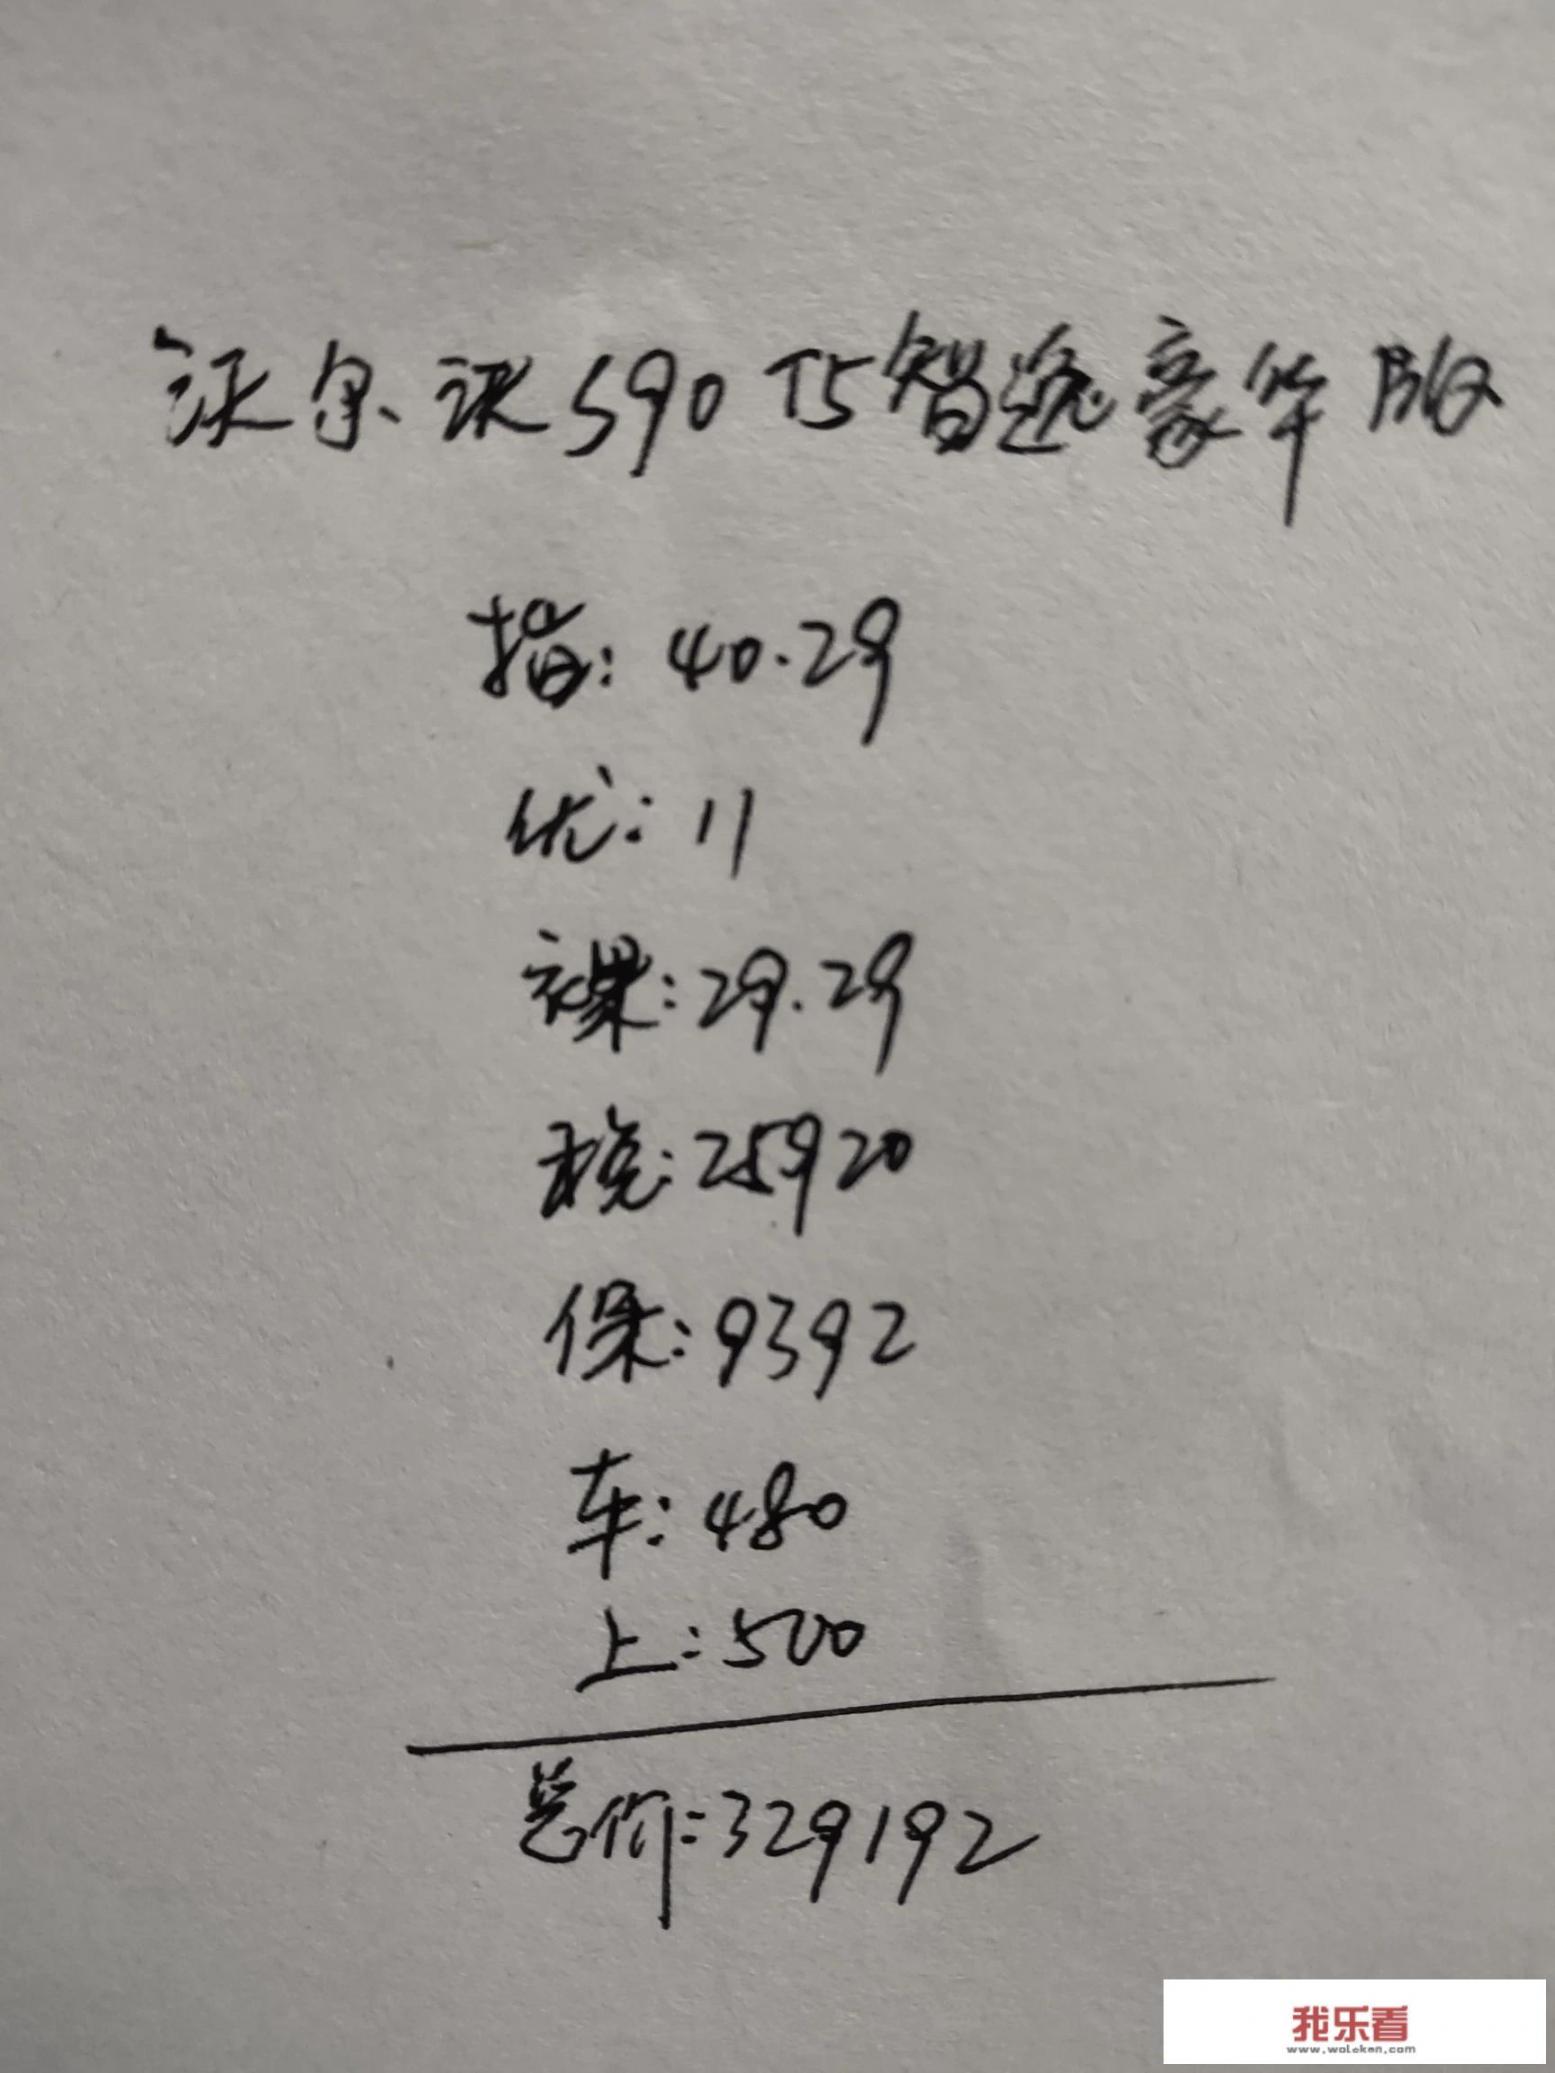 沃尔沃S90 T5智逸豪华版
指：40.29
优：11
裸：29.29
税：25920
保：9392
车：480
上：500
总价：329192
我乐看
www.woleken.com